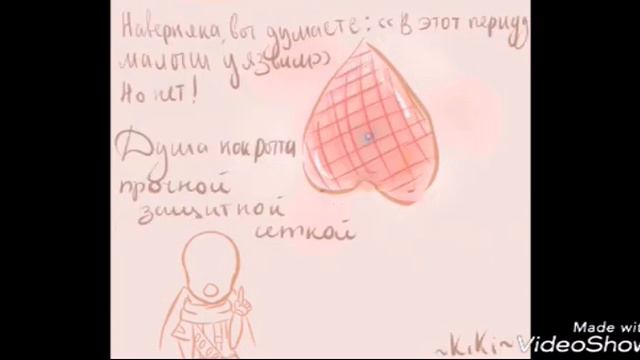 Наверняка, вы думаете: «В этот период
малыш уязвим»
Но нет!
Душа покрыта
прочной
защитной
сеткой
~KiKi~
Made with
VideoShow